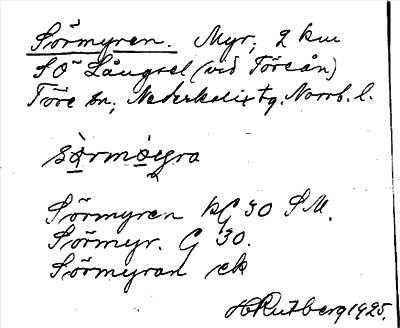 Sörmyren. Myr, 2 km
SO Långsel (vid Töreån)
Töre sn, Nederkalix tg. Norrb. l.
Sörmyren kG 30 SM.
Sörmyr. G 30.
Sörmyran ek
H Rutberg 1925.